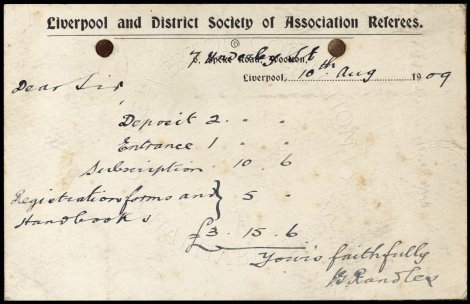 Liverpool and District Society of Association Referees.
7 St
Road,
Liverpool, 10th Aug 1909
Dear Sir
Deposit 2 . .
Entrance 1 . .
Subscription . 10 . 6
Registration forms and } 5 .
Handbooks
£3 . 15 . 6
Yours faithfully
B Randles